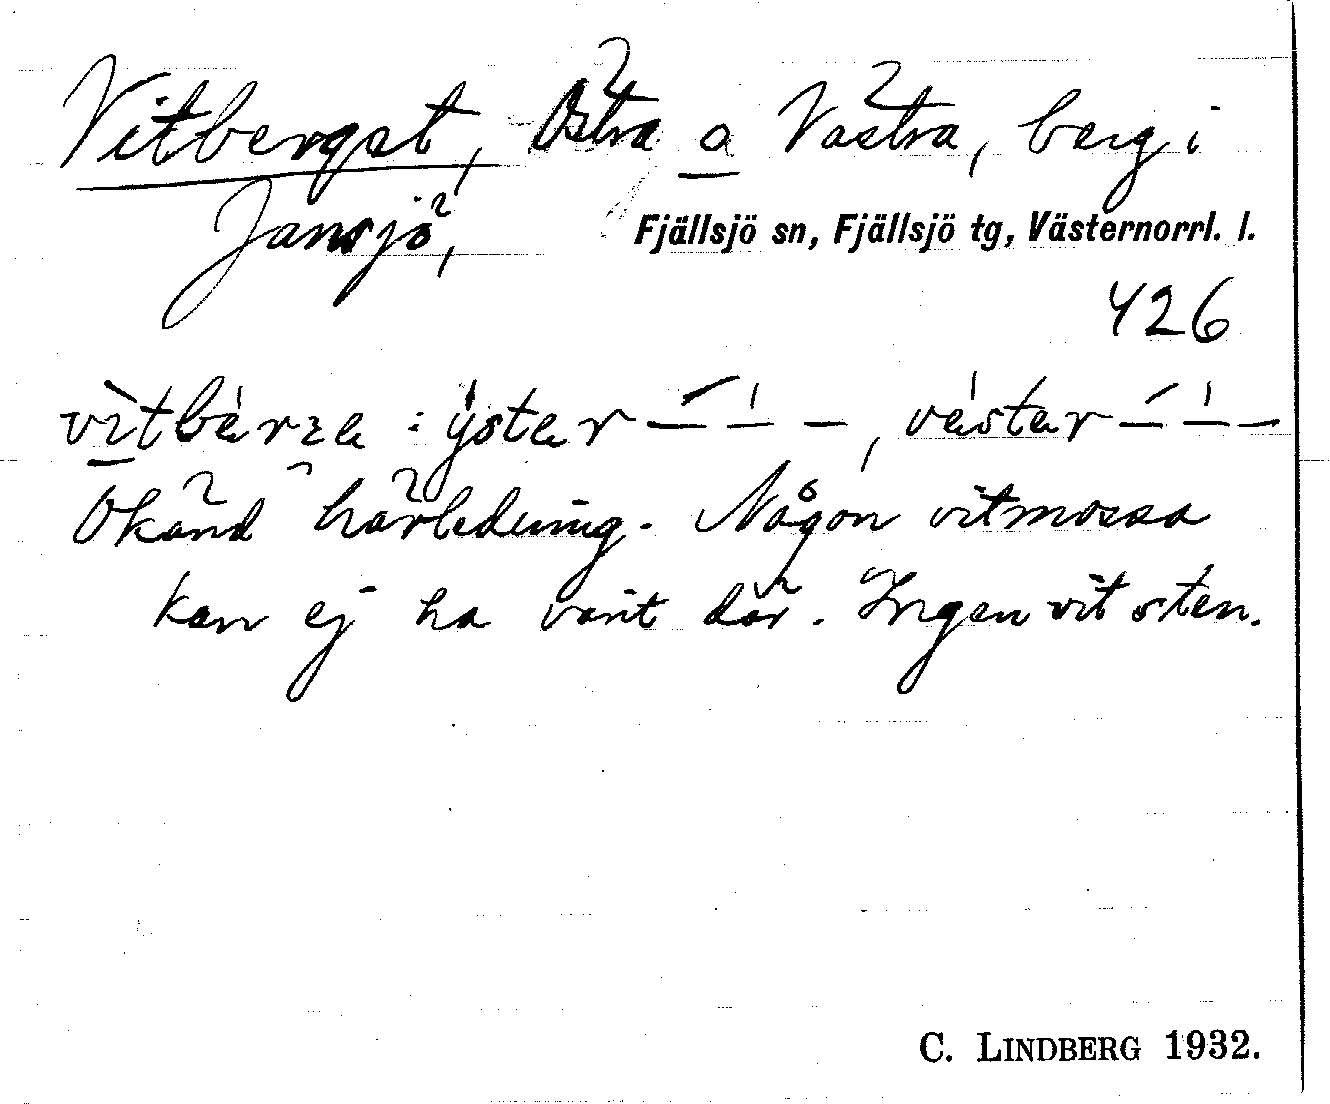 Vitberget, Östra o Västra, berg i
Jansjö,
Fjällsjö sn, Fjällsjö tg, Västernorrl. l.
426
Okänd härledning. Någon vitmossa
kan ej ha varit där. Ingen vit sten.
C. LINDBERG 1932.